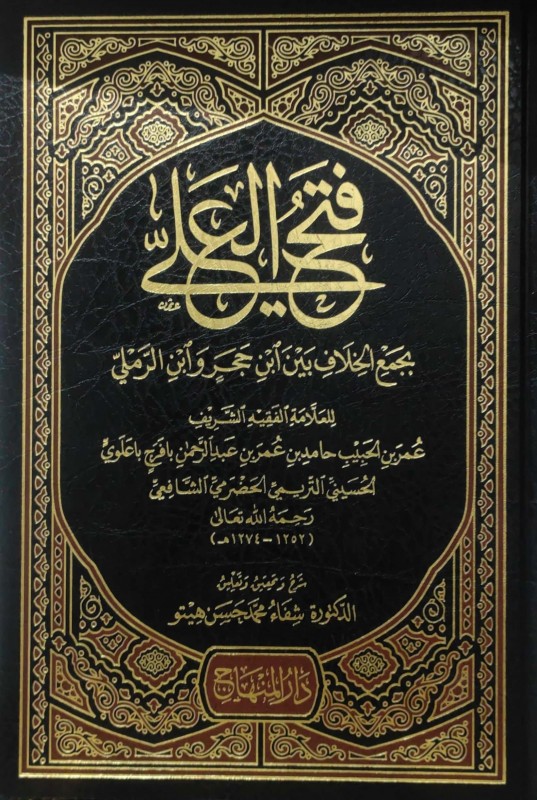 فَتْحُ العَلِيِّ
بِجَمْعِ الخِلَافِ بَيْنَ ٱبْنِ حَجَرٍ وَٱبْنِ الرَّمْلِيِّ
لِلعَلَّامَةِ الفَقِيهِ الشَّرِيفِ
عُمَرَ بْنِ الحَبِيبِ حَامِد بْنِ عُمَرَ بْنِ عَبْدِ الرَّحْمٰنِ بَافَرَج بَاعَلَوِيّ
الحُسَيْنِيِّ التَّرِيمِيِّ الحَضْرَمِيِّ الشَّافِعِيِّ
رَحِمَهُ اللهُ تَعَالَىٰ
(١٢٥٢ - ١٢٧٤هـ)
شرح وتحقيق وتعليق
الدكتورة شِفَاء محمّد حَسَن هيتو
دَارُ المِنْهَاجِ